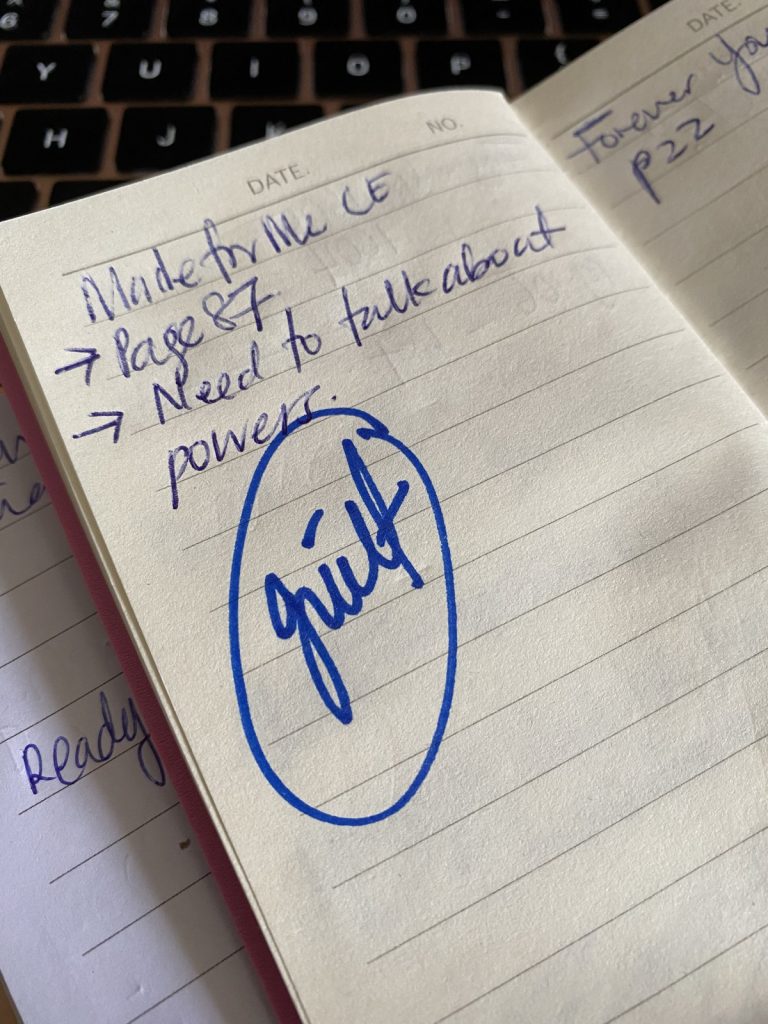 6 7 8 9 0
Y U I O P
H J K
DATE. NO.
Made for Me CE
→ Page 87.
→ Need to talk about
powers.
guilt
DATE.
Forever You
P22
Ready